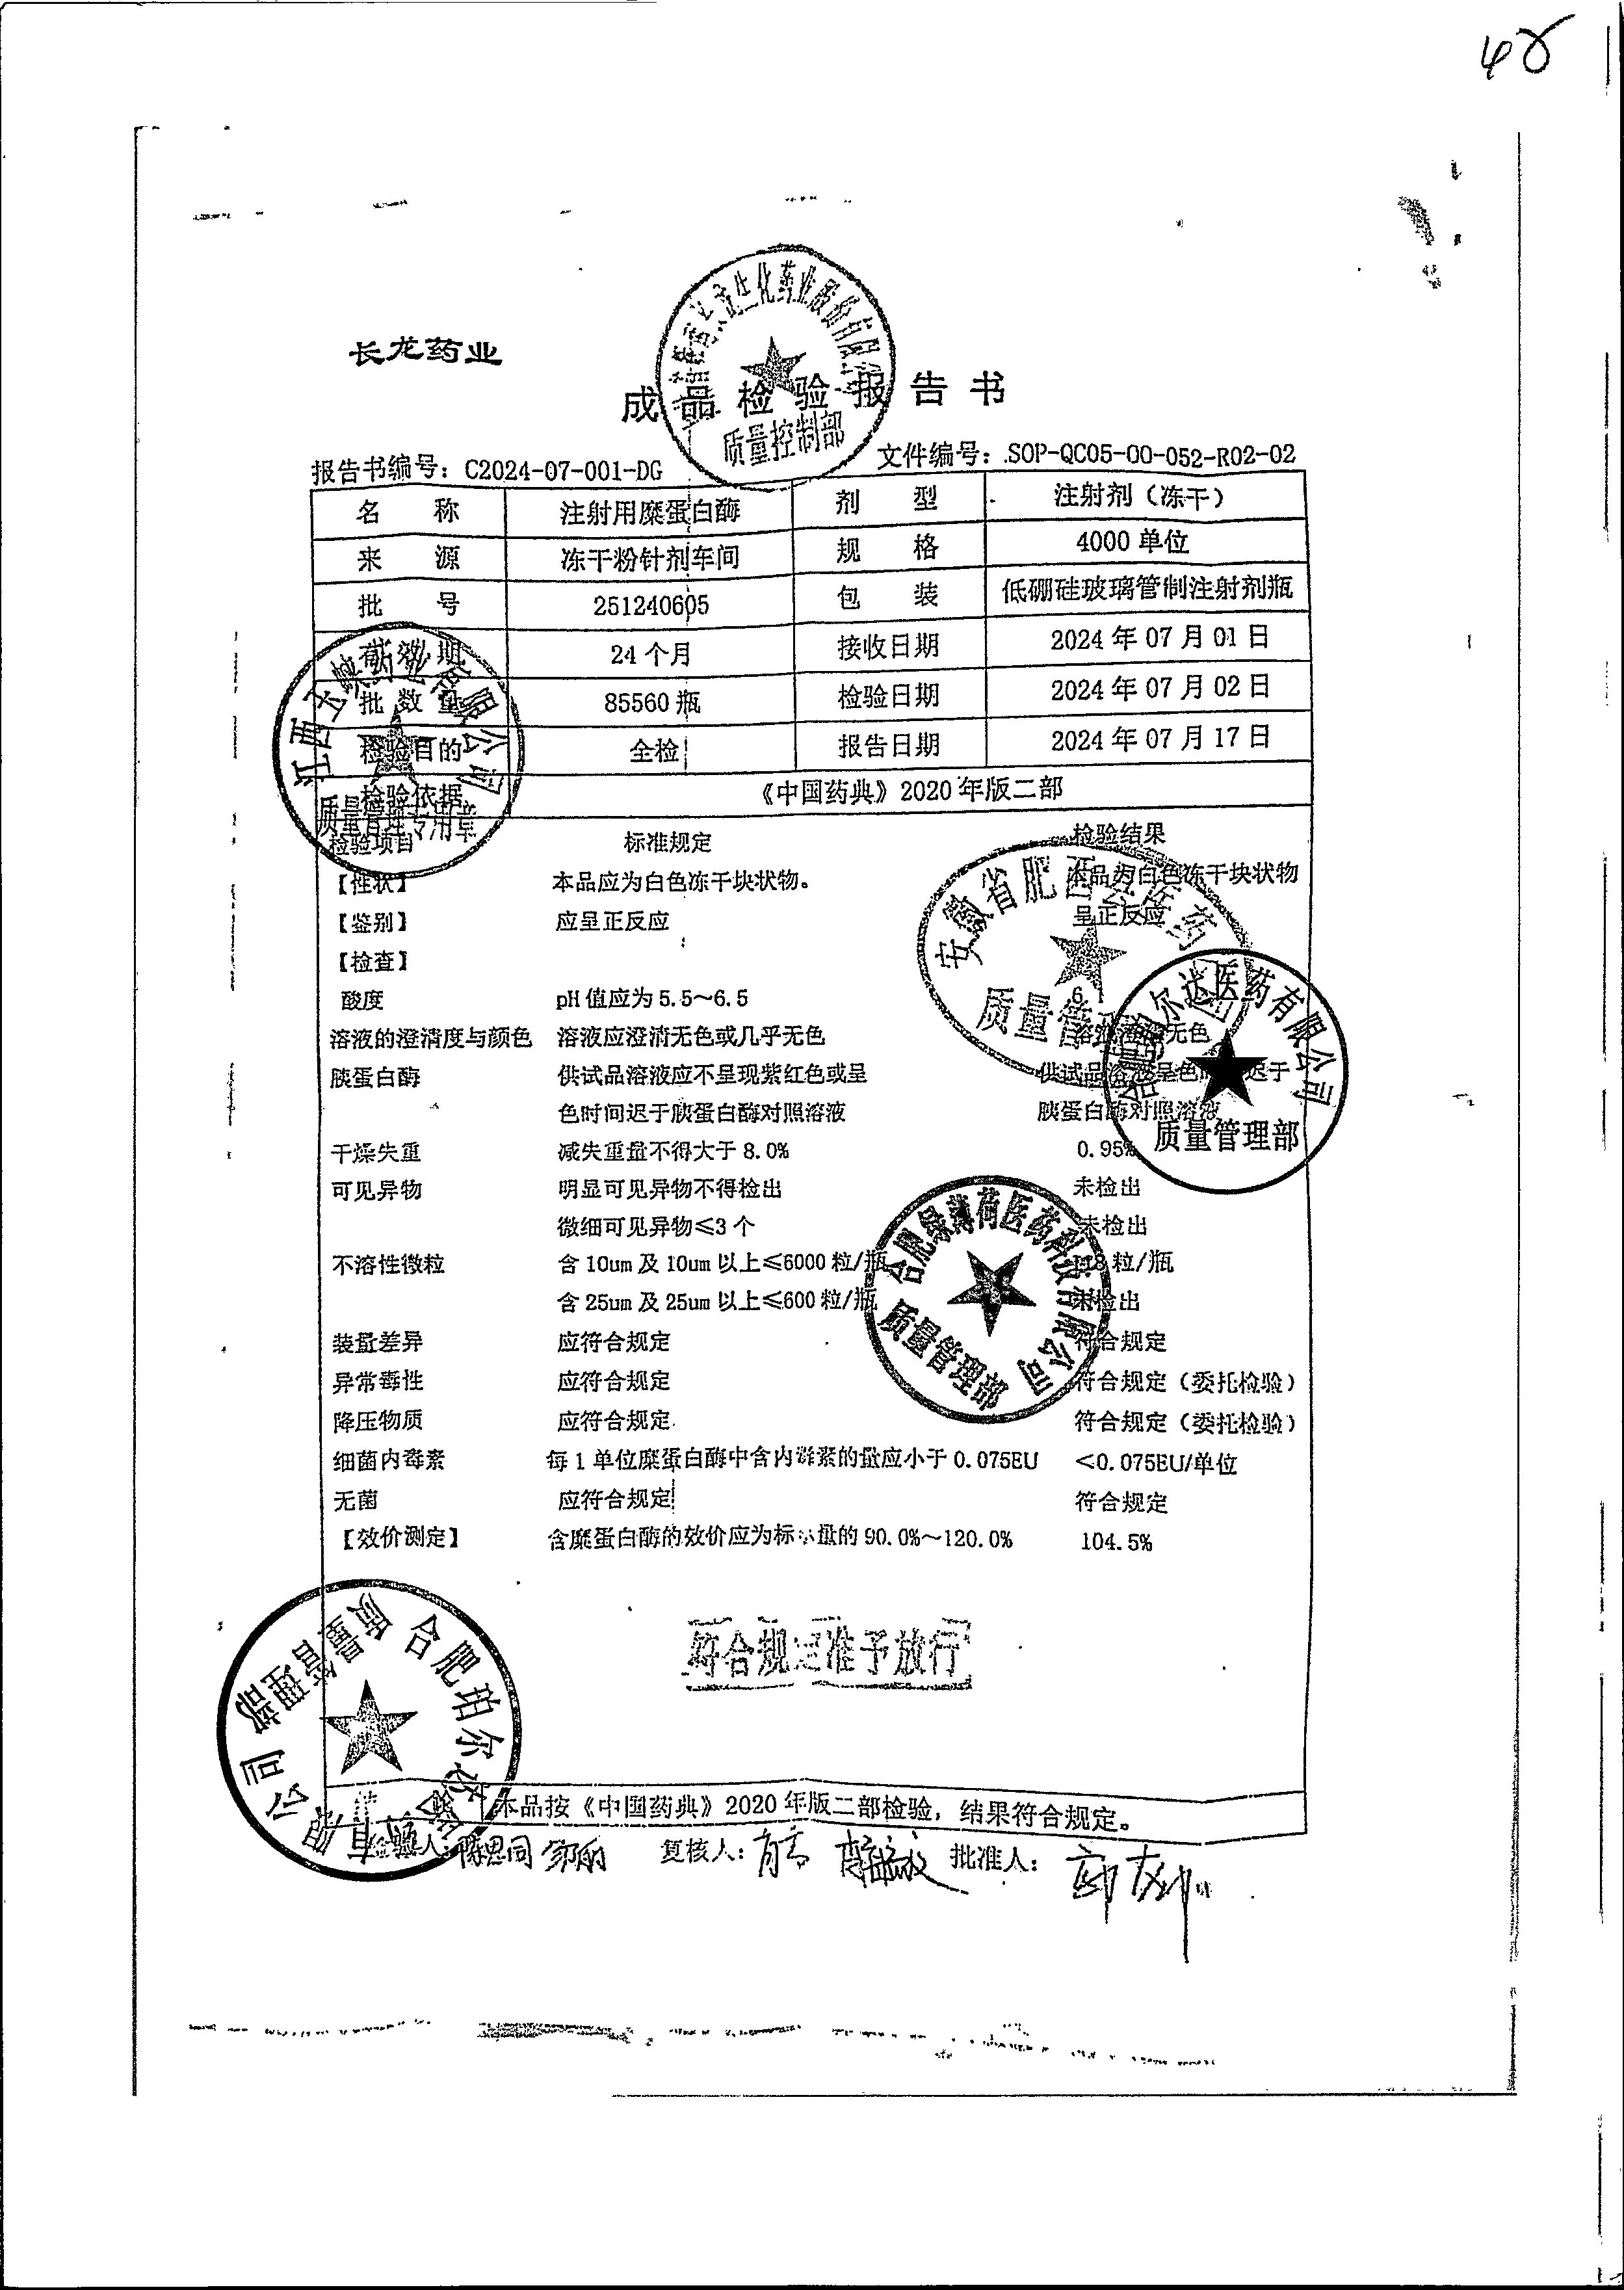 48
长龙药业
成品检验报告书
质量控制部
报告书编号：C2024-07-001-DG 文件编号：SOP-QC05-00-052-R02-02
名 称 注射用糜蛋白酶 剂 型 注射剂（冻干）
来 源 冻干粉针剂车间 规 格 4000 单位
批 号 251240605 包 装 低硼硅玻璃管制注射剂瓶
有效期 24 个月 接收日期 2024 年 07 月 01 日
批 数 量 85560 瓶 检验日期 2024 年 07 月 02 日
检验目的 全检 报告日期 2024 年 07 月 17 日
检验依据 《中国药典》2020 年版二部
质量管理专用章
检验项目 标准规定 检验结果
【性状】 本品应为白色冻干块状物。 本品为白色冻干块状物
【鉴别】 应呈正反应 呈正反应
【检查】
酸度 pH 值应为 5.5～6.5
溶液的澄清度与颜色 溶液应澄清无色或几乎无色 无色
胰蛋白酶 供试品溶液应不呈现紫红色或呈 供试品溶液呈色 迟于
色时间迟于胰蛋白酶对照溶液 胰蛋白酶对照溶液
干燥失重 减失重量不得大于 8.0% 0.95%
可见异物 明显可见异物不得检出 未检出
微细可见异物≤3 个 未检出
不溶性微粒 含 10um 及 10um 以上≤6000 粒/瓶 粒/瓶
含 25um 及 25um 以上≤600 粒/瓶 未检出
装量差异 应符合规定 符合规定
异常毒性 应符合规定 符合规定（委托检验）
降压物质 应符合规定 符合规定（委托检验）
细菌内毒素 每 1 单位糜蛋白酶中含内毒素的量应小于 0.075EU ＜0.075EU/单位
无菌 应符合规定 符合规定
【效价测定】 含糜蛋白酶的效价应为标 量的 90.0%～120.0% 104.5%
安徽省肥西 医药
质量管理
医药有限公司
质量管理部
合肥绿薄荷医药科技有限公司
质量管理部
符合规定准予放行
合肥珀尔 有限公司
质量管理部
本品按《中国药典》2020 年版二部检验，结果符合规定。
复核人： 批准人：